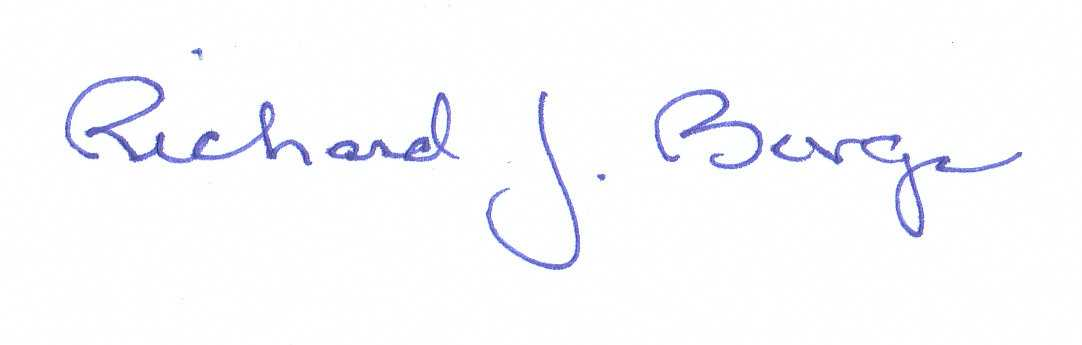 Richard J. Barga